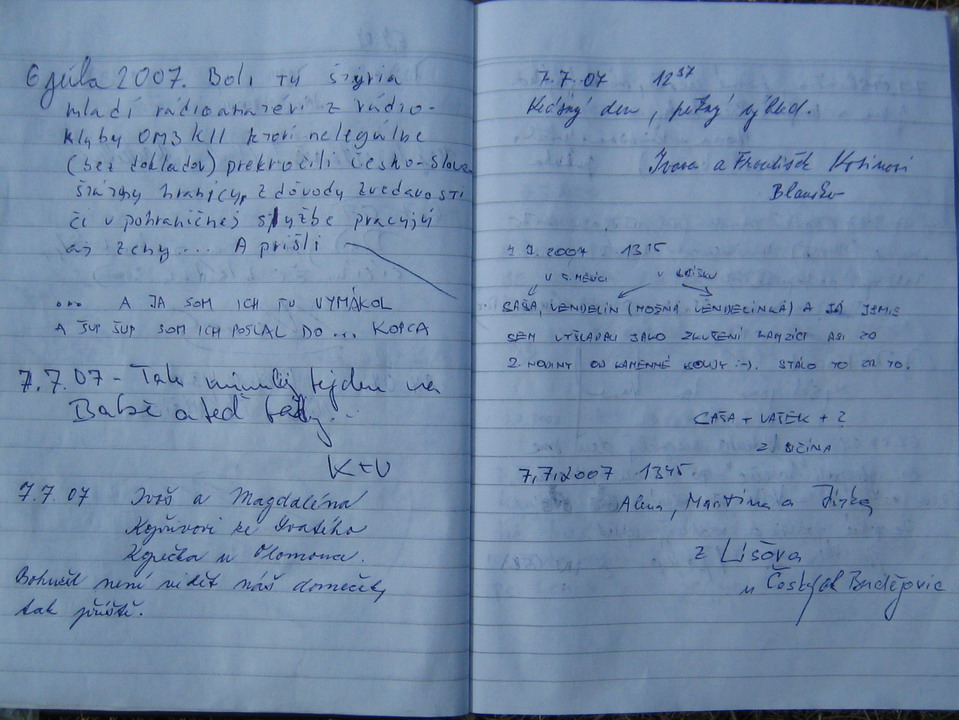 6 júla 2007. Boli tu štyria
mladí rádioamatéri z rádio-
klubu OM3KII ktorí nelegálne
(bez dokladov) prekročili česko-slove
hranicu, z dôvodu zvedavosti
či v pohraničnej službe pracujú
aj ženy.... A prišli
... A JA SOM ICH TU VYMÁKOL
A ŠUP ŠUP SOM ICH POSLAL DO ... KOPCA
7.7.07 - Tak minulý týden na
Babě a teď tady..
K+V
7.7.07 Ivoš a Magdaléna
ze Svatého
Kopečka u Olomouce.
Bohužel není vidět náš domeček,
tak příště.
7.7.07 12 37
Krásný den, pěkný výhled.
Ivana a František
Blansko
7.7.2007 13 15
SAŠA, VENDELÍN (MOŽNÁ VENDELINKA) A JÁ JSME
SEM VYŠLAPALI JAKO ZKUŠENÍ KAMZÍCI ASI ZA
2 HODINY OD KAMENNÉ :-). STÁLO TO ZA TO.
SAŠA + VAŠEK + ?
Z JIČÍNA
7.7.2007 13 45
Alena, Martina a Jirka
z Lišova
u Českých Budějovic